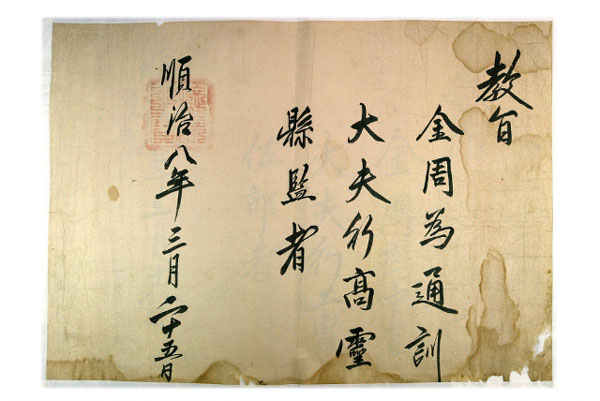 教旨
金周為通訓
大夫行髙靈
縣監者
順治八年三月二十五日